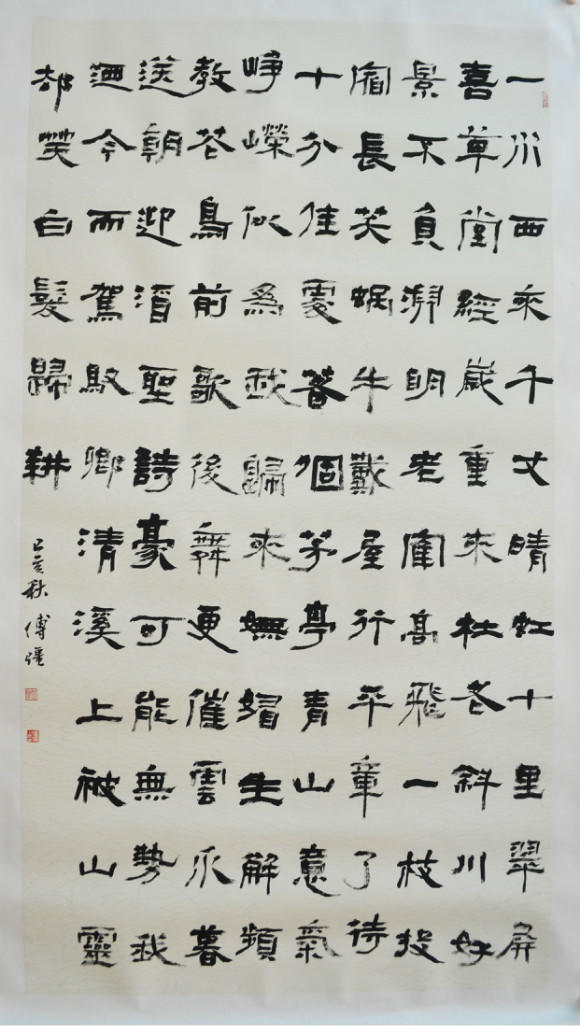 一水西來千丈晴虹十里翠屏
喜草堂經歲重來杜老斜川好
景不負淵明老鶴高飛一枝投
宿長笑蝸牛戴屋行平章了待
十分佳處著個茅亭青山意氣
崢嶸似為我歸來嫵媚生解頻
教花鳥前歌後舞更催雲水暮
送朝迎酒聖詩豪可能無勢我
迺今而駕馭卿清溪上被山靈
却笑白髮歸耕
己亥秋傅